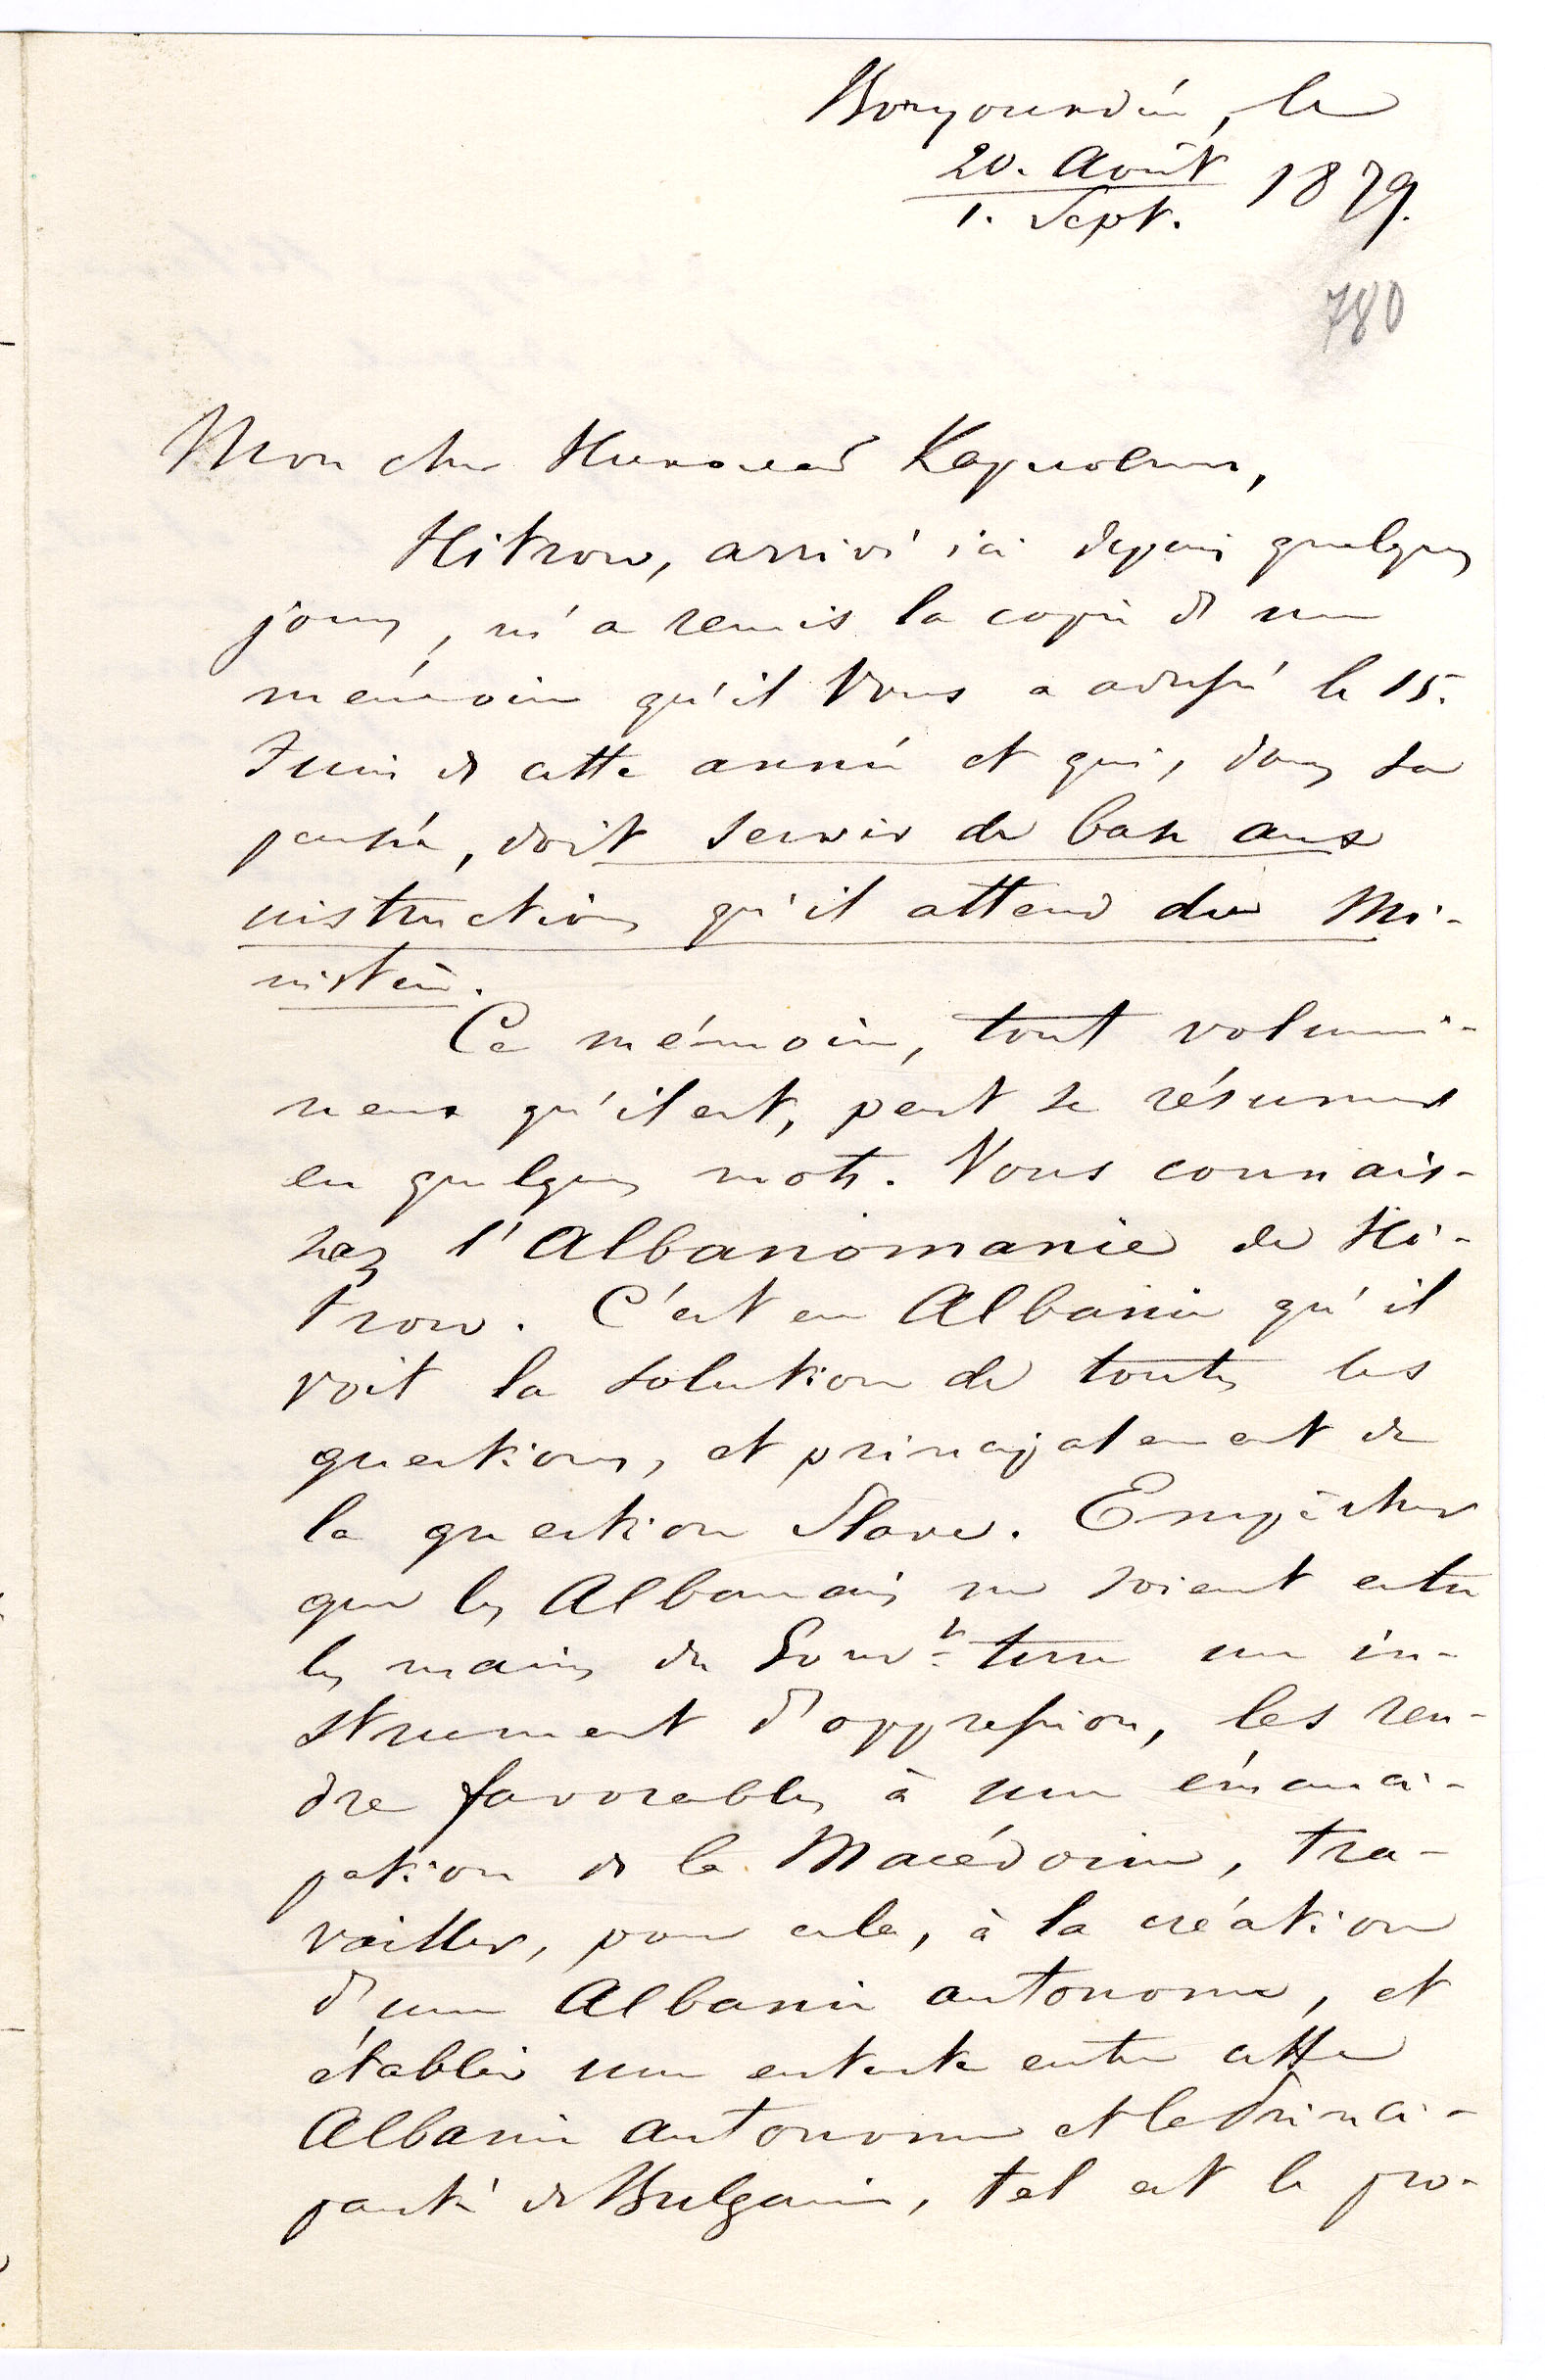 Bouyoukdéré, le
20. Août
1. Sept. 1879.
780
Mon cher Николай Карлович,
Hitrow, arrivé ici depuis quelques
jours, m'a remis la copie d'un
mémoire qu'il Vous a adressé le 15.
Juin de cette année et qui, dans sa
pensée, doit servir de base aux
instructions qu'il attend du Mi-
nistère.
Ce mémoire, tout volumi-
neux qu'il est, peut se résumer
en quelques mots. Vous connais-
sez l'Albanomanie de Hi-
trow. C'est en Albanie qu'il
voit la solution de toutes les
questions, et principalement de
la question Slave. Empêcher
que les Albanais ne soient entre
les mains du Gouvt turc un in-
strument d'oppression, les ren-
dre favorables à une émanci-
pation de la Macédoine, tra-
vailler, pour cela, à la création
d'une Albanie autonome, et
établir une entente entre cette
Albanie autonome et la Princi-
pauté de Bulgarie, tel est le pro-